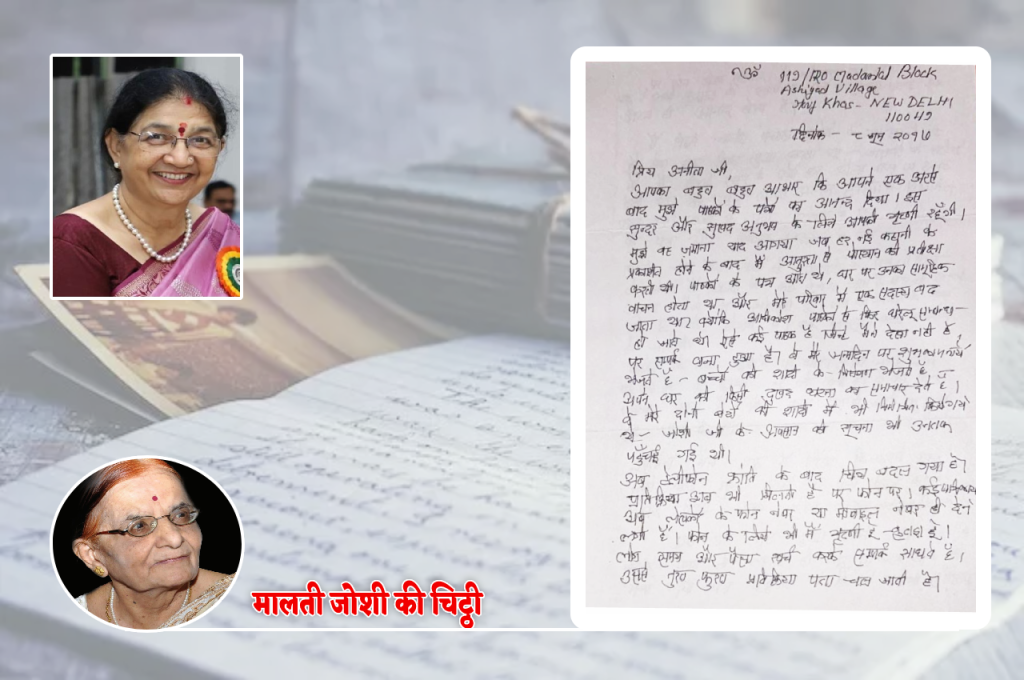 ॐ 119/120 Block
Village
Khas - NEW DELHI
110049
दिनांक - ८ जून २०१७
प्रिय अनीता जी,
आपका बहुत बहुत आभार कि आपने एक अरसे
बाद मुझे पाठकों के पत्रों का आनन्द दिया। इस
सुन्दर और सुखद अनुभव के लिये आपकी ऋणी रहूँगी।
मुझे वह जमाना याद आगया जब हर नई कहानी के
प्रकाशित होने के बाद मैं आतुरता से पोस्टमन की प्रतीक्षा
करती थी। पाठकों के पत्र आते थे। घर पर उनका सामूहिक
वाचन होता था और मेरे परिवार में एक सदस्य बढ
जाता था। क्योंकि अधिकांश पाठकों से फिर घरेलू सम्बन्ध
हो जाते थे। ऐसे कई पाठक हैं जिन्हें मैंने देखा नहीं है
पर सम्पर्क बना हुआ है। वे मेरे जन्मदिन पर शुभकामनायें
भेजते हैं - बच्चों की शादी के निमंत्रण भेजते हैं,
अपने घर की किसी दुखद घटना का समाचार देते हैं।
वे मेरे दोनों बच्चों की शादी में भी निमंत्रित किये गये
थे - जोशी जी के अवसान की सूचना भी उनतक
पहुँचाई गई थी।
अब टेलीफोन क्रांति के बाद चित्र बदल गया है।
प्रतिक्रिया अब भी मिलती है पर फोन पर। कई
अब लेखकों के फोन नंबर या मोबाइल नंबर ही देने
लगी हैं। फोन के लिये भी मैं ऋणी हूँ
लोग समय और पैसा खर्च करके सम्पर्क साधते हैं।
उससे तुरत फुरत प्रतिक्रिया पता चल जाती है।
मालती जोशी की चिट्ठी